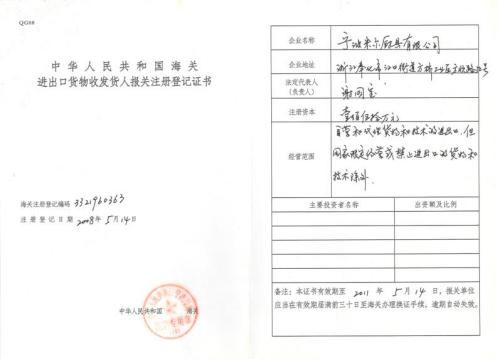 QG08
中华人民共和国海关
进出口货物收发货人报关注册登记证书
海关注册登记编码 3321960363
注册登记日期 2008年5月14日
中华人民共和国 海关
企业名称 宁波米尔厨具有限公司
企业地址
法定代表人
(负责人) 谢国宝
注册资本 壹佰伍拾万元
经营范围
自营和代理货物和技术的进出口,但
国家限定经营或禁止进出口的货物和
技术除外.
主要投资者名称 出资额及比例
备注:本证书有效期至 2011年5月14日,报关单位
应当在有效期届满前三十日至海关办理换证手续,逾期自动失效。